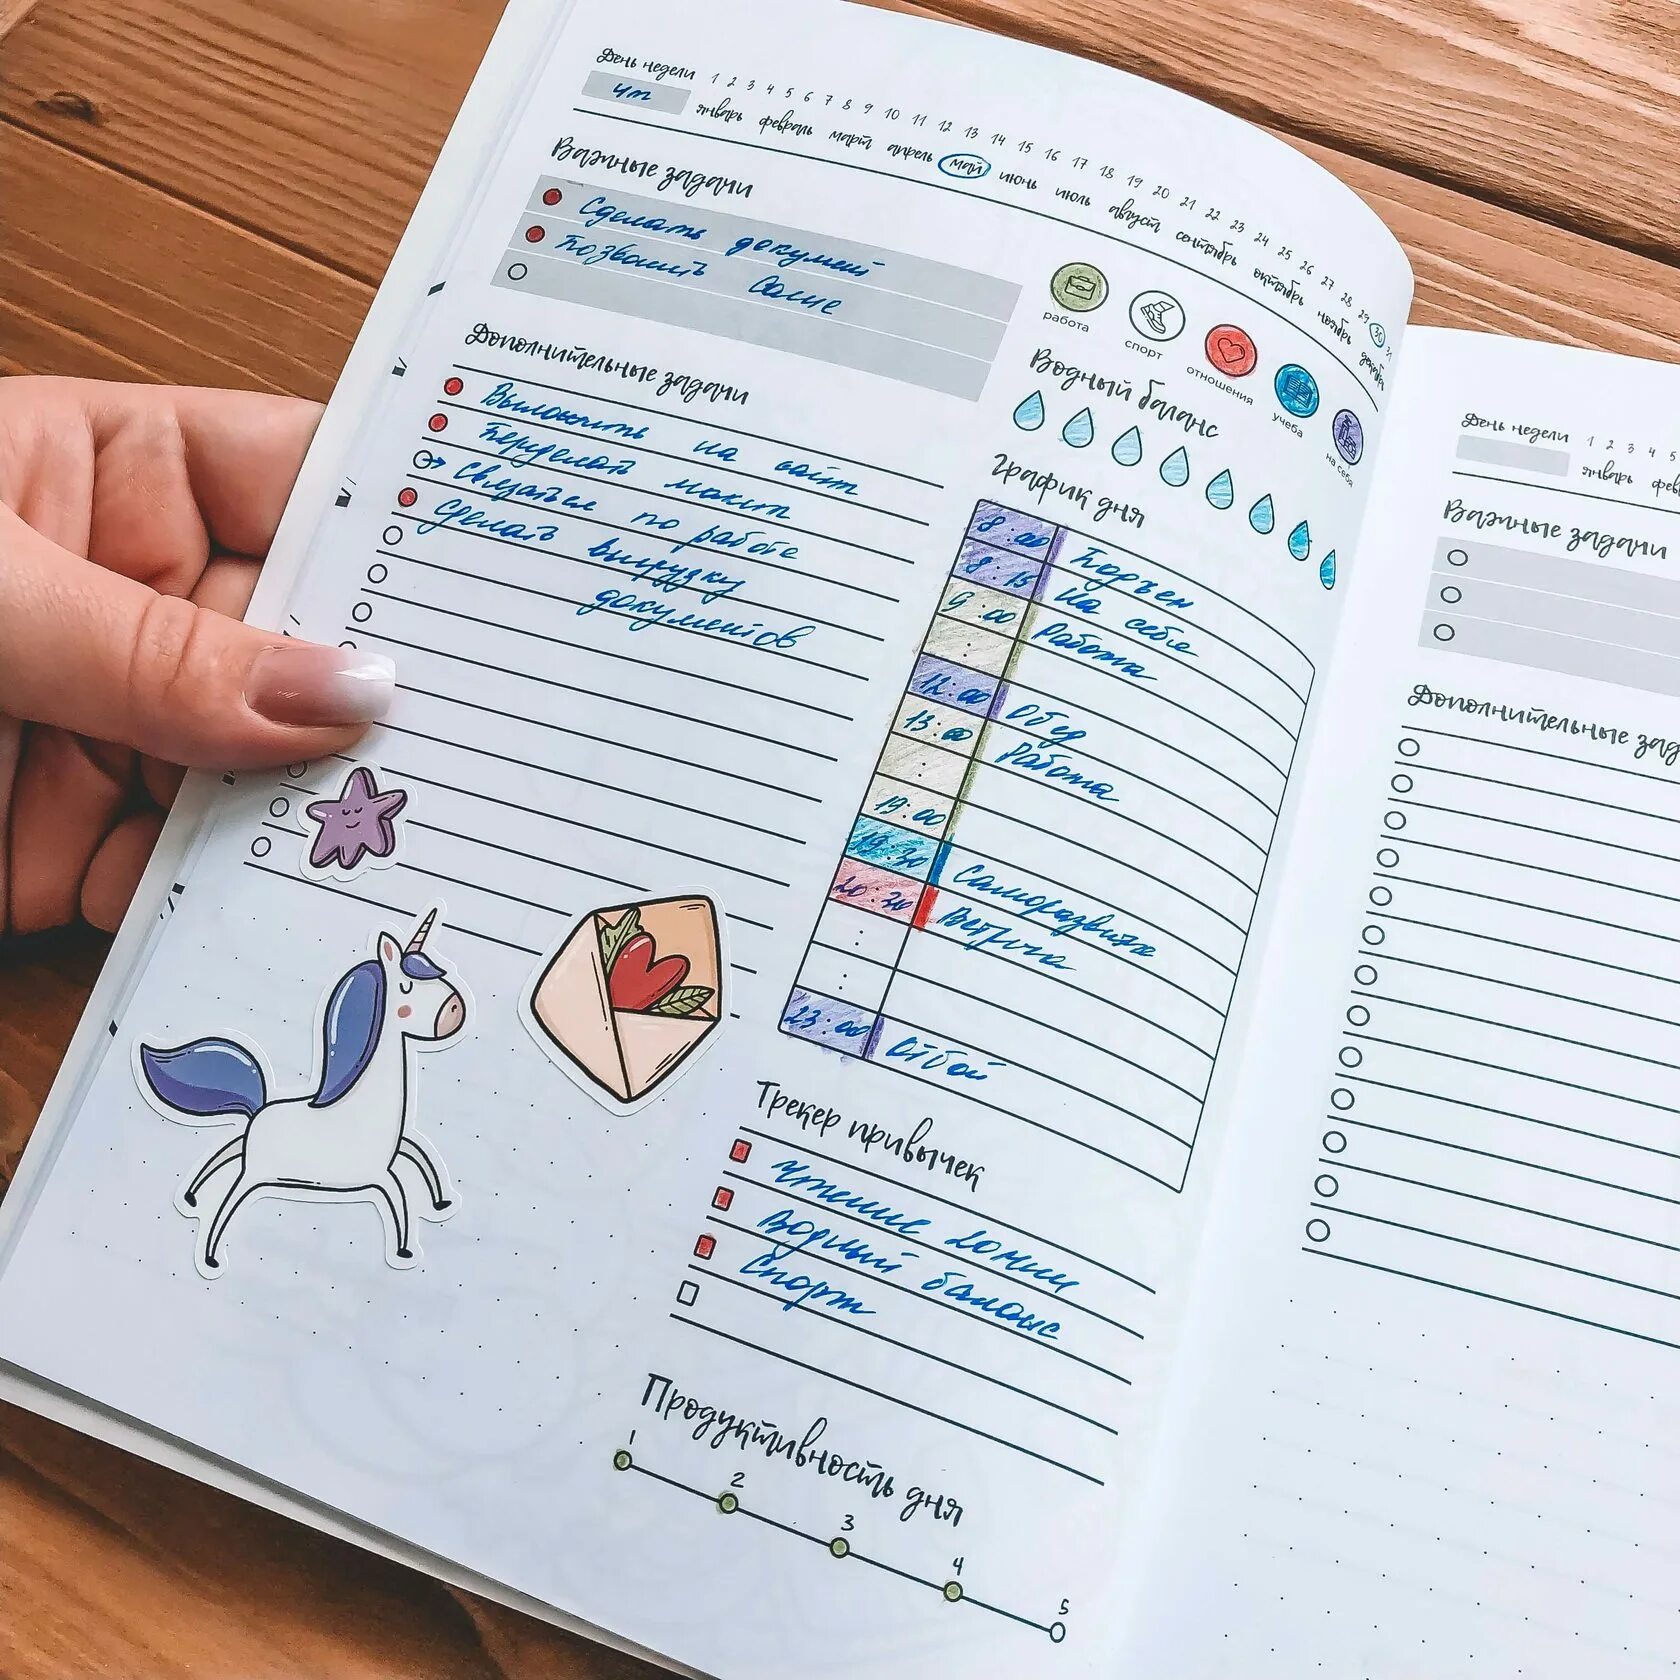 День недели 1 2 3 4 5 6 7 8 9 10 11 12 13 14 15 16 17 18 19 20 21 22 23 24 25 26 27 28 29 30 31
чт январь февраль март апрель май июнь июль август сентябрь октябрь ноябрь декабрь
Важные задачи
Сделать документ
Позвонить Соне
Дополнительные задачи
Выложить на сайт
Переделать макет
Связаться по работе
Сделать выгрузку
документов
работа
спорт
отношения
учеба
на себя
Водный баланс
График дня
8:00 Подъем
8:15 На себя
9:00 Работа
:
12:00 Обед
13:00 Работа
:
19:00
19:30 Саморазвитие
20:20 Встреча
:
:
23:00 Отбой
Трекер привычек
Чтение 20 мин
Водный баланс
Спорт
Продуктивность дня
1
2
3
4
5
День недели 1 2 3 4 5
январь фев
Важные задачи
Дополнительные зад